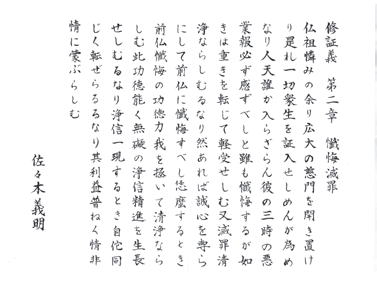 修証義 第二章 懺悔滅罪
仏祖憐みの余り広大の慈門を開き置け
り是れ一切衆生を証入せしめんが為め
なり人天誰か入らざらん彼の三時の悪
業報必ず感ずべしと雖も懺悔するが如
きは重きを転じて軽受せしむ又滅罪清
浄ならしむるなり然あれば誠心を専ら
にして前仏に懺悔すべし恁麼するとき
前仏懺悔の功徳力我を拯いて清浄なら
しむ此功徳能く無礙の浄信精進を生長
せしむるなり浄信一現するとき自佗同
じく転ぜらるるなり其利益普ねく情非
情に蒙ぶらしむ
佐々木義明